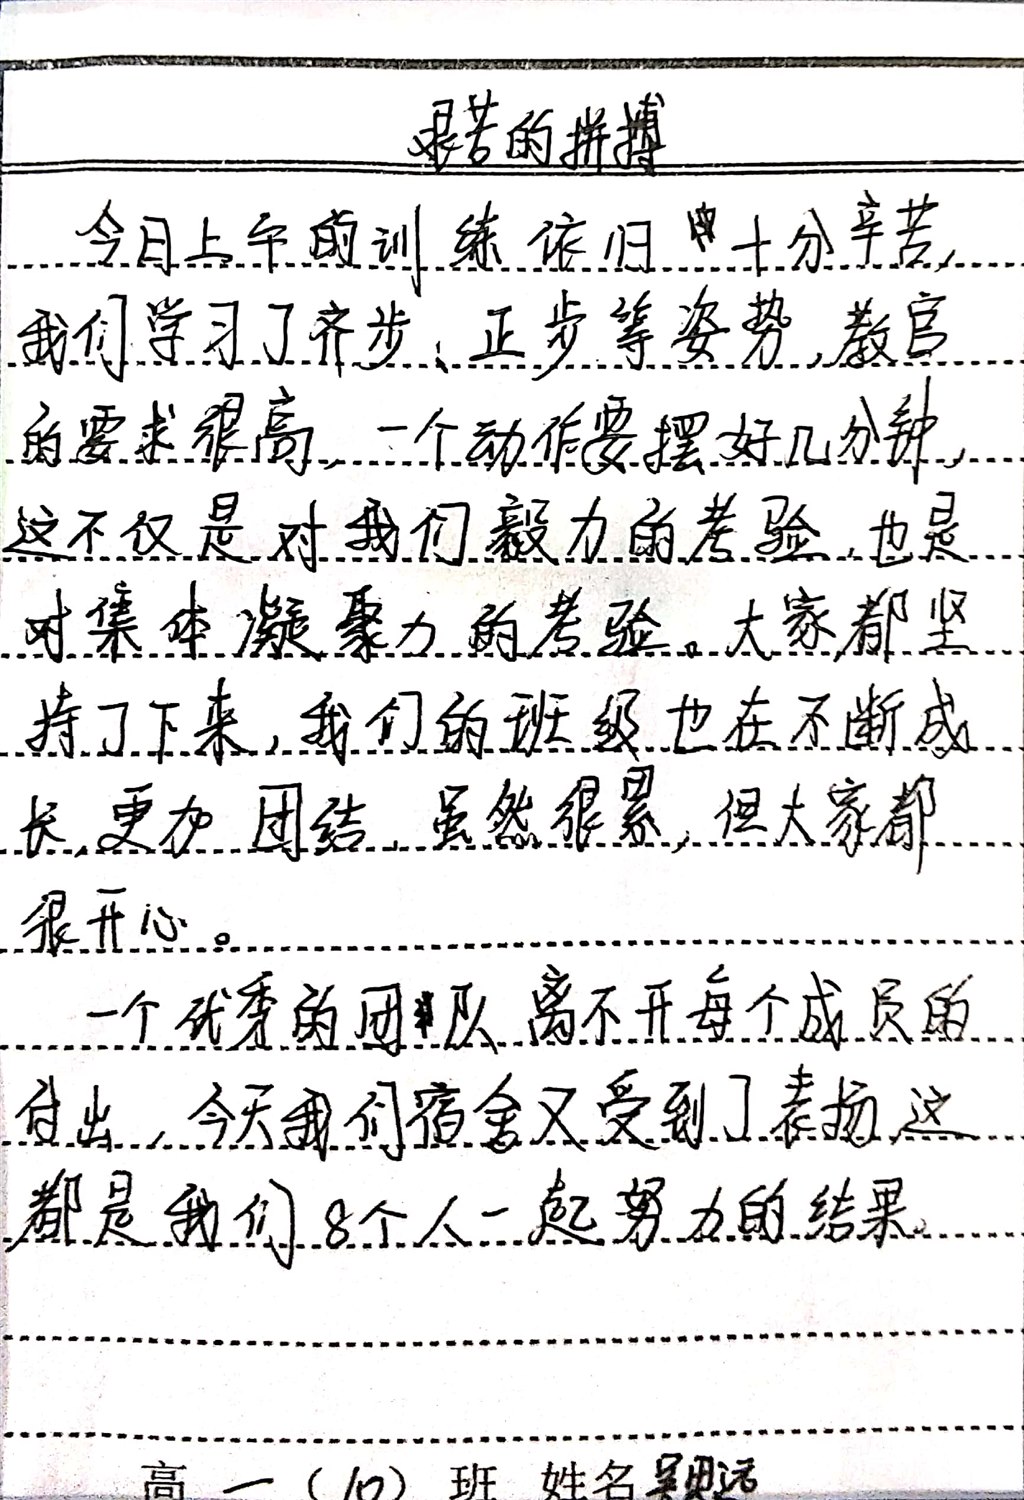 艰苦的拼搏
今日上午的训练依归十分辛苦,
我们学习了齐步、正步等姿势,教官
的要求很高,一个动作要摆好几分钟,
这不仅是对我们毅力的考验,也是
对集体凝聚力的考验。大家都坚
持了下来,我们的班级也在不断成
长,更加团结,虽然很累,但大家都
很开心。
一个优秀的团队离不开每个成员的
付出,今天我们宿舍又受到了表扬,这
都是我们8个人一起努力的结果。
高一(10)班 姓名吴思远